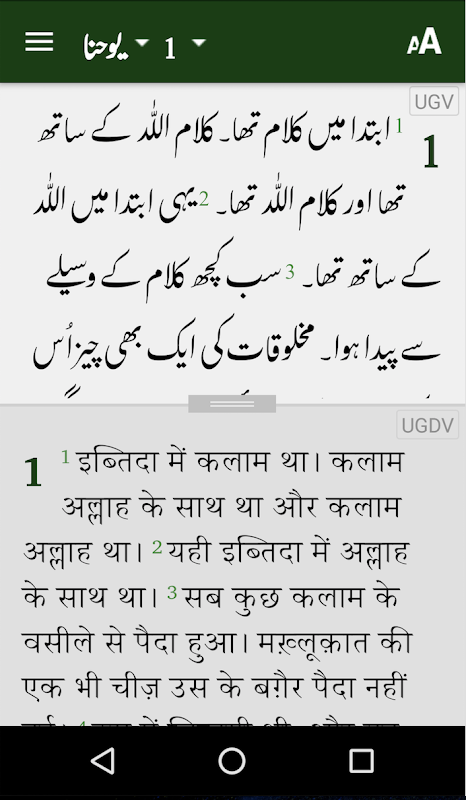 یوحنا 1
AA
UGV
1
1 ابتدا میں کلام تھا۔ کلام اللہ کے ساتھ
تھا اور کلام اللہ تھا۔ 2 یہی ابتدا میں اللہ
کے ساتھ تھا۔ 3 سب کچھ کلام کے وسیلے
سے پیدا ہوا۔ مخلوقات کی ایک بھی چیز اُس
UGDV
1
1 इब्तिदा में कलाम था। कलाम
अल्लाह के साथ था और कलाम
अल्लाह था। 2 यही इब्तिदा में अल्लाह
के साथ था। 3 सब कुछ कलाम के
वसीले से पैदा हुआ। मख़्लूक़ात की
एक भी चीज़ उस के बग़ैर पैदा नहीं